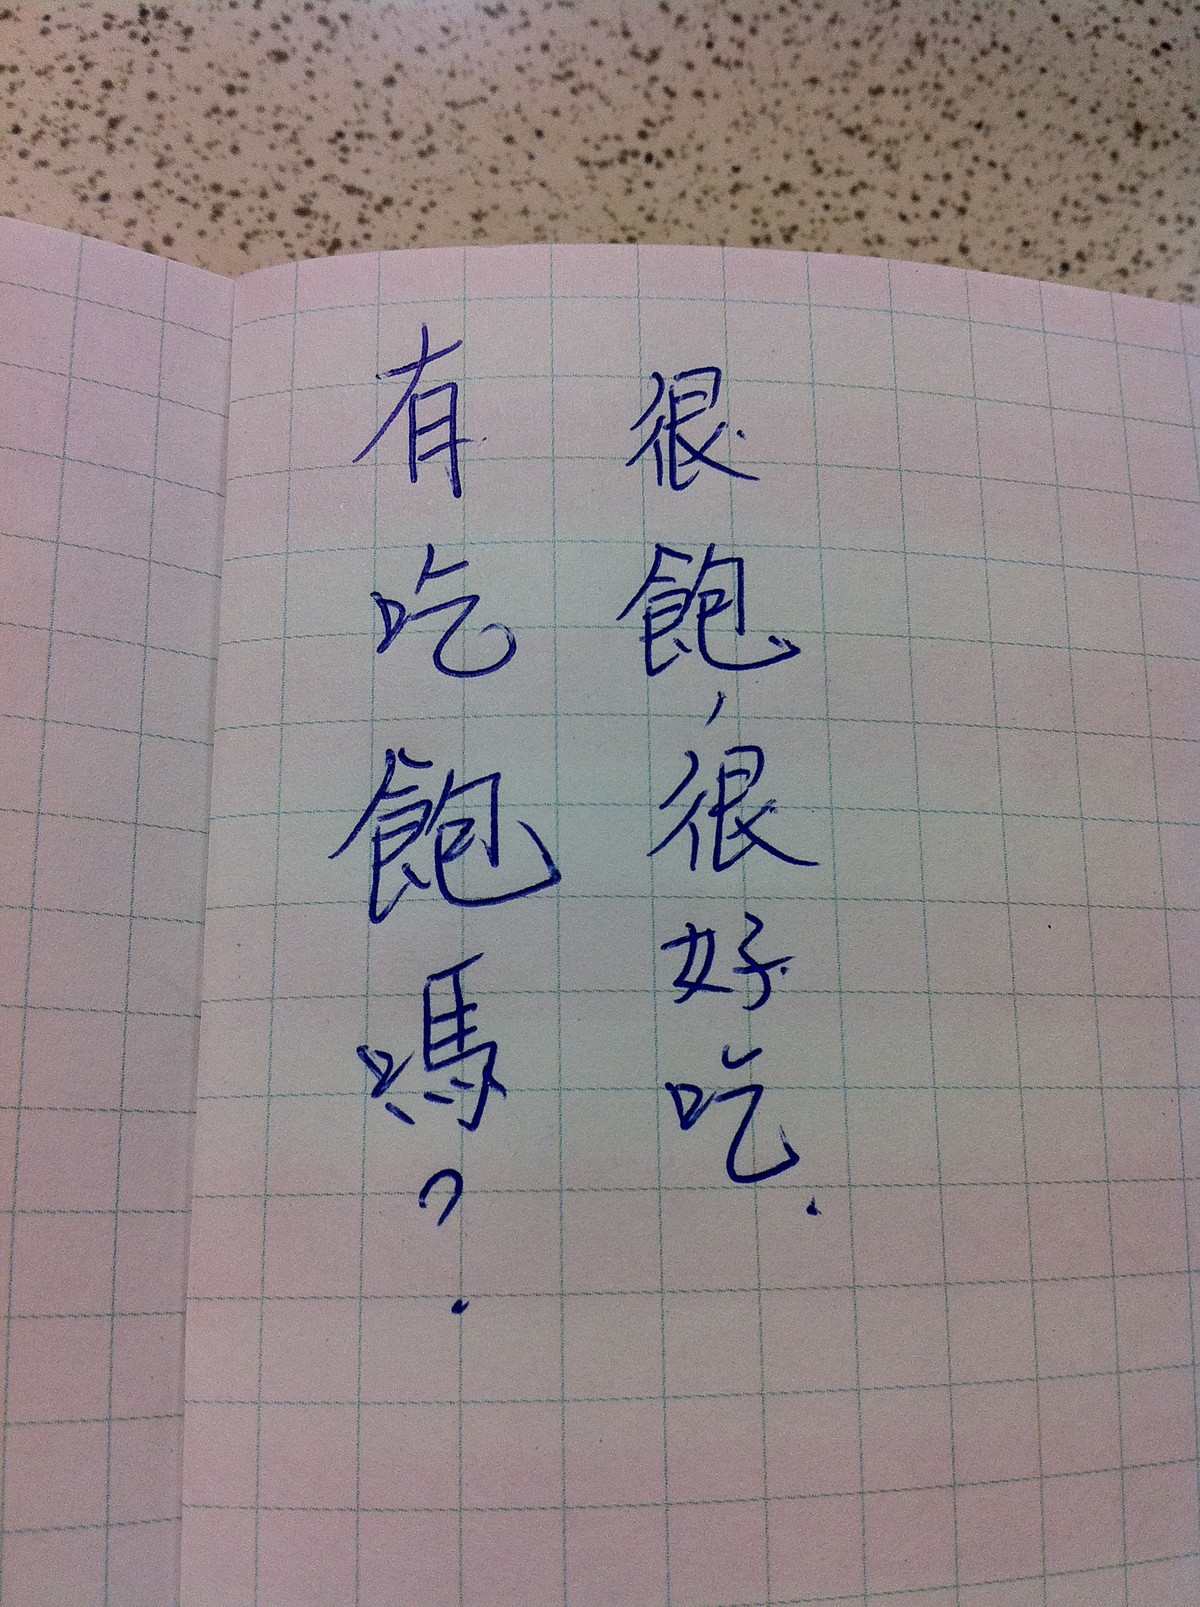 有吃飽嗎？
很飽，很好吃.